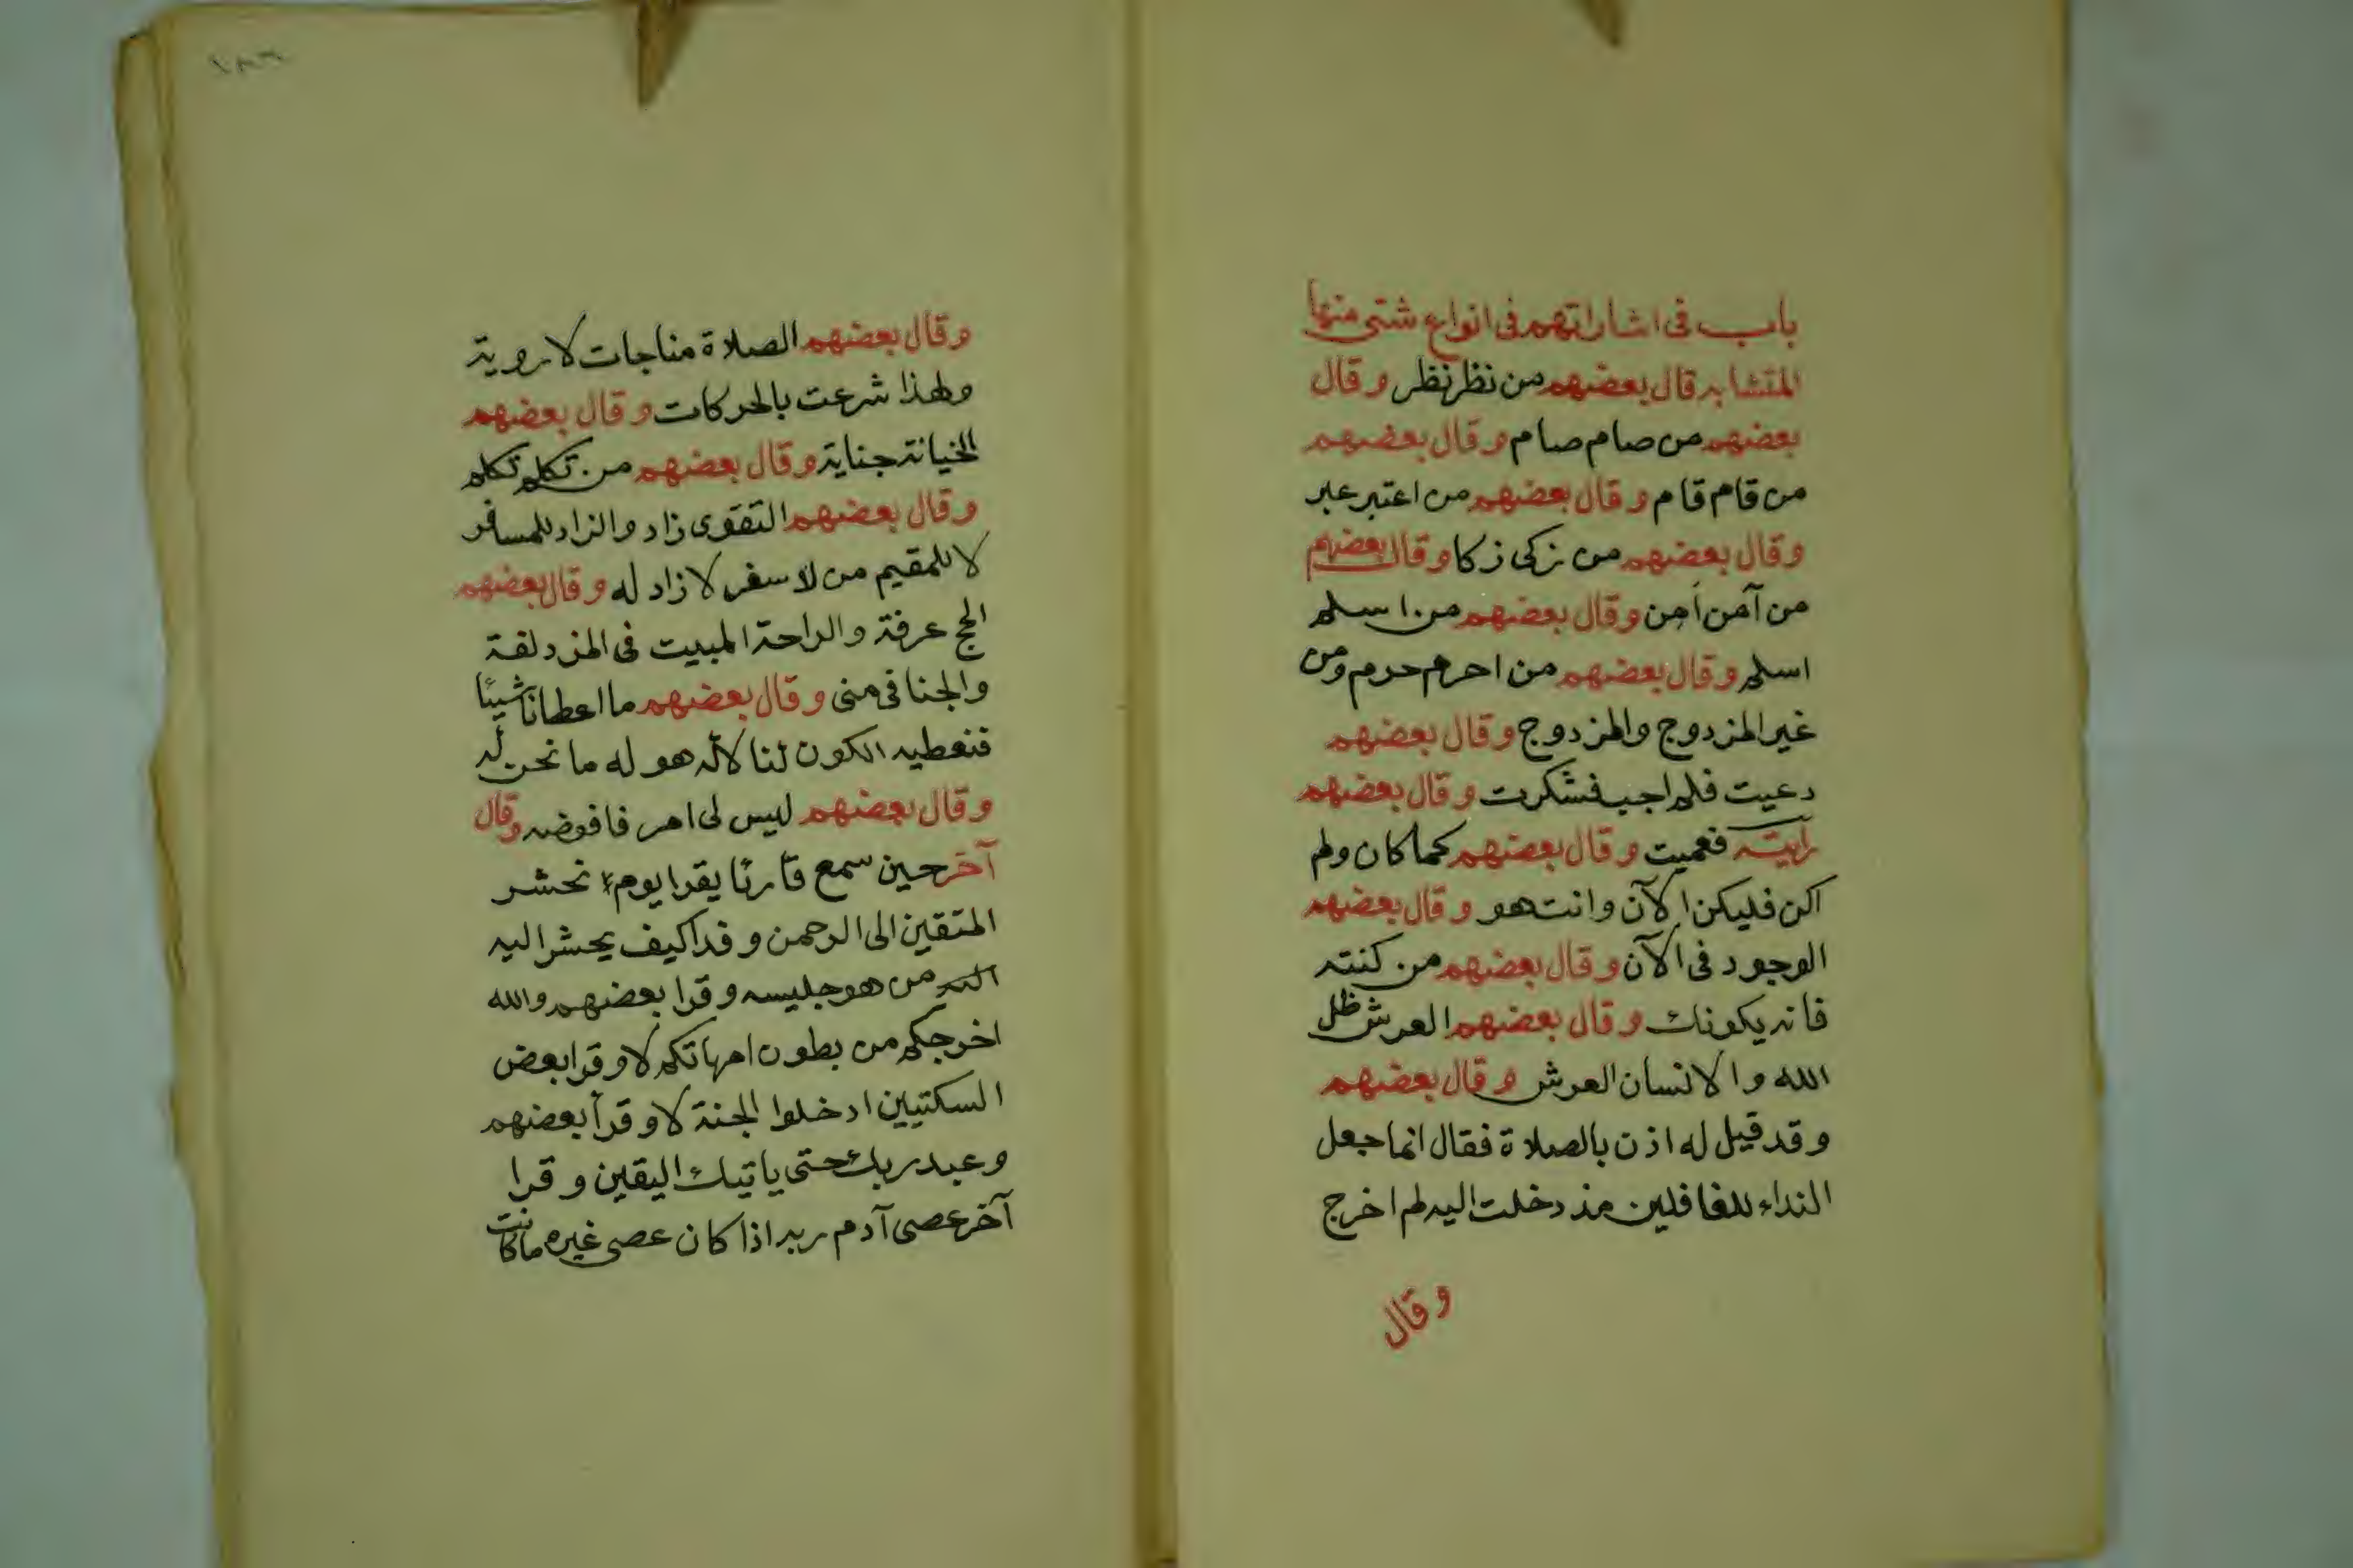 باب فى اشاراتهم فى انواع شتى منها
المتشابه قال بعضهم من نظر نظر وقال
بعضهم من صام صام وقال بعضهم
من قام قام وقال بعضهم من اعتبر عبر
وقال بعضهم من زكى زكا وقال بعضهم
من آمن أمن وقال بعضهم من اسلم
اسلم وقال بعضهم من احرم حرم ومن
غير المزدوج والمزدوج وقال بعضهم
دعيت فلم اجب فشكرت وقال بعضهم
رايته فعميت وقال بعضهم كما كان ولم
اكن فليكن الآن وانت هو وقال بعضهم
الوجود فى الآن وقال بعضهم من كنته
فانه يكونك وقال بعضهم العرش ظل
الله والانسان العرش وقال بعضهم
وقد قيل له اذن بالصلاة فقال انما جعل
النداء للغافلين مذ دخلت اليه لم اخرج
وقال
وقال بعضهم الصلاة مناجات لا روية
ولهذا شرعت بالحركات وقال بعضهم
الخيانة جناية وقال بعضهم من تكلم تكلم
وقال بعضهم التقوى زاد والزاد للمسافر
لا للمقيم من لا سفر لا زاد له وقال بعضهم
الحج عرفة والراحة المبيت فى المزدلفة
والجنا فى منى وقال بعضهم ما اعطانا شيئا
فنعطيه الكون لنا لاله هو له ما نحن له
وقال بعضهم ليس لى امر فافوضه وقال
آخر حين سمع قارئا يقرا يوم نحشر
المتقين الى الرحمن وفدا كيف يحشر اليه
من هو جليسه وقرا بعضهم والله
اخرجكم من بطون امهاتكم لا وقرا بعض
السكتيين ادخلوا الجنة لا وقرأ بعضهم
وعبد ربك حتى ياتيك اليقين وقرا
آخر عصى آدم ربه اذا كان عصى غيره ما كانت